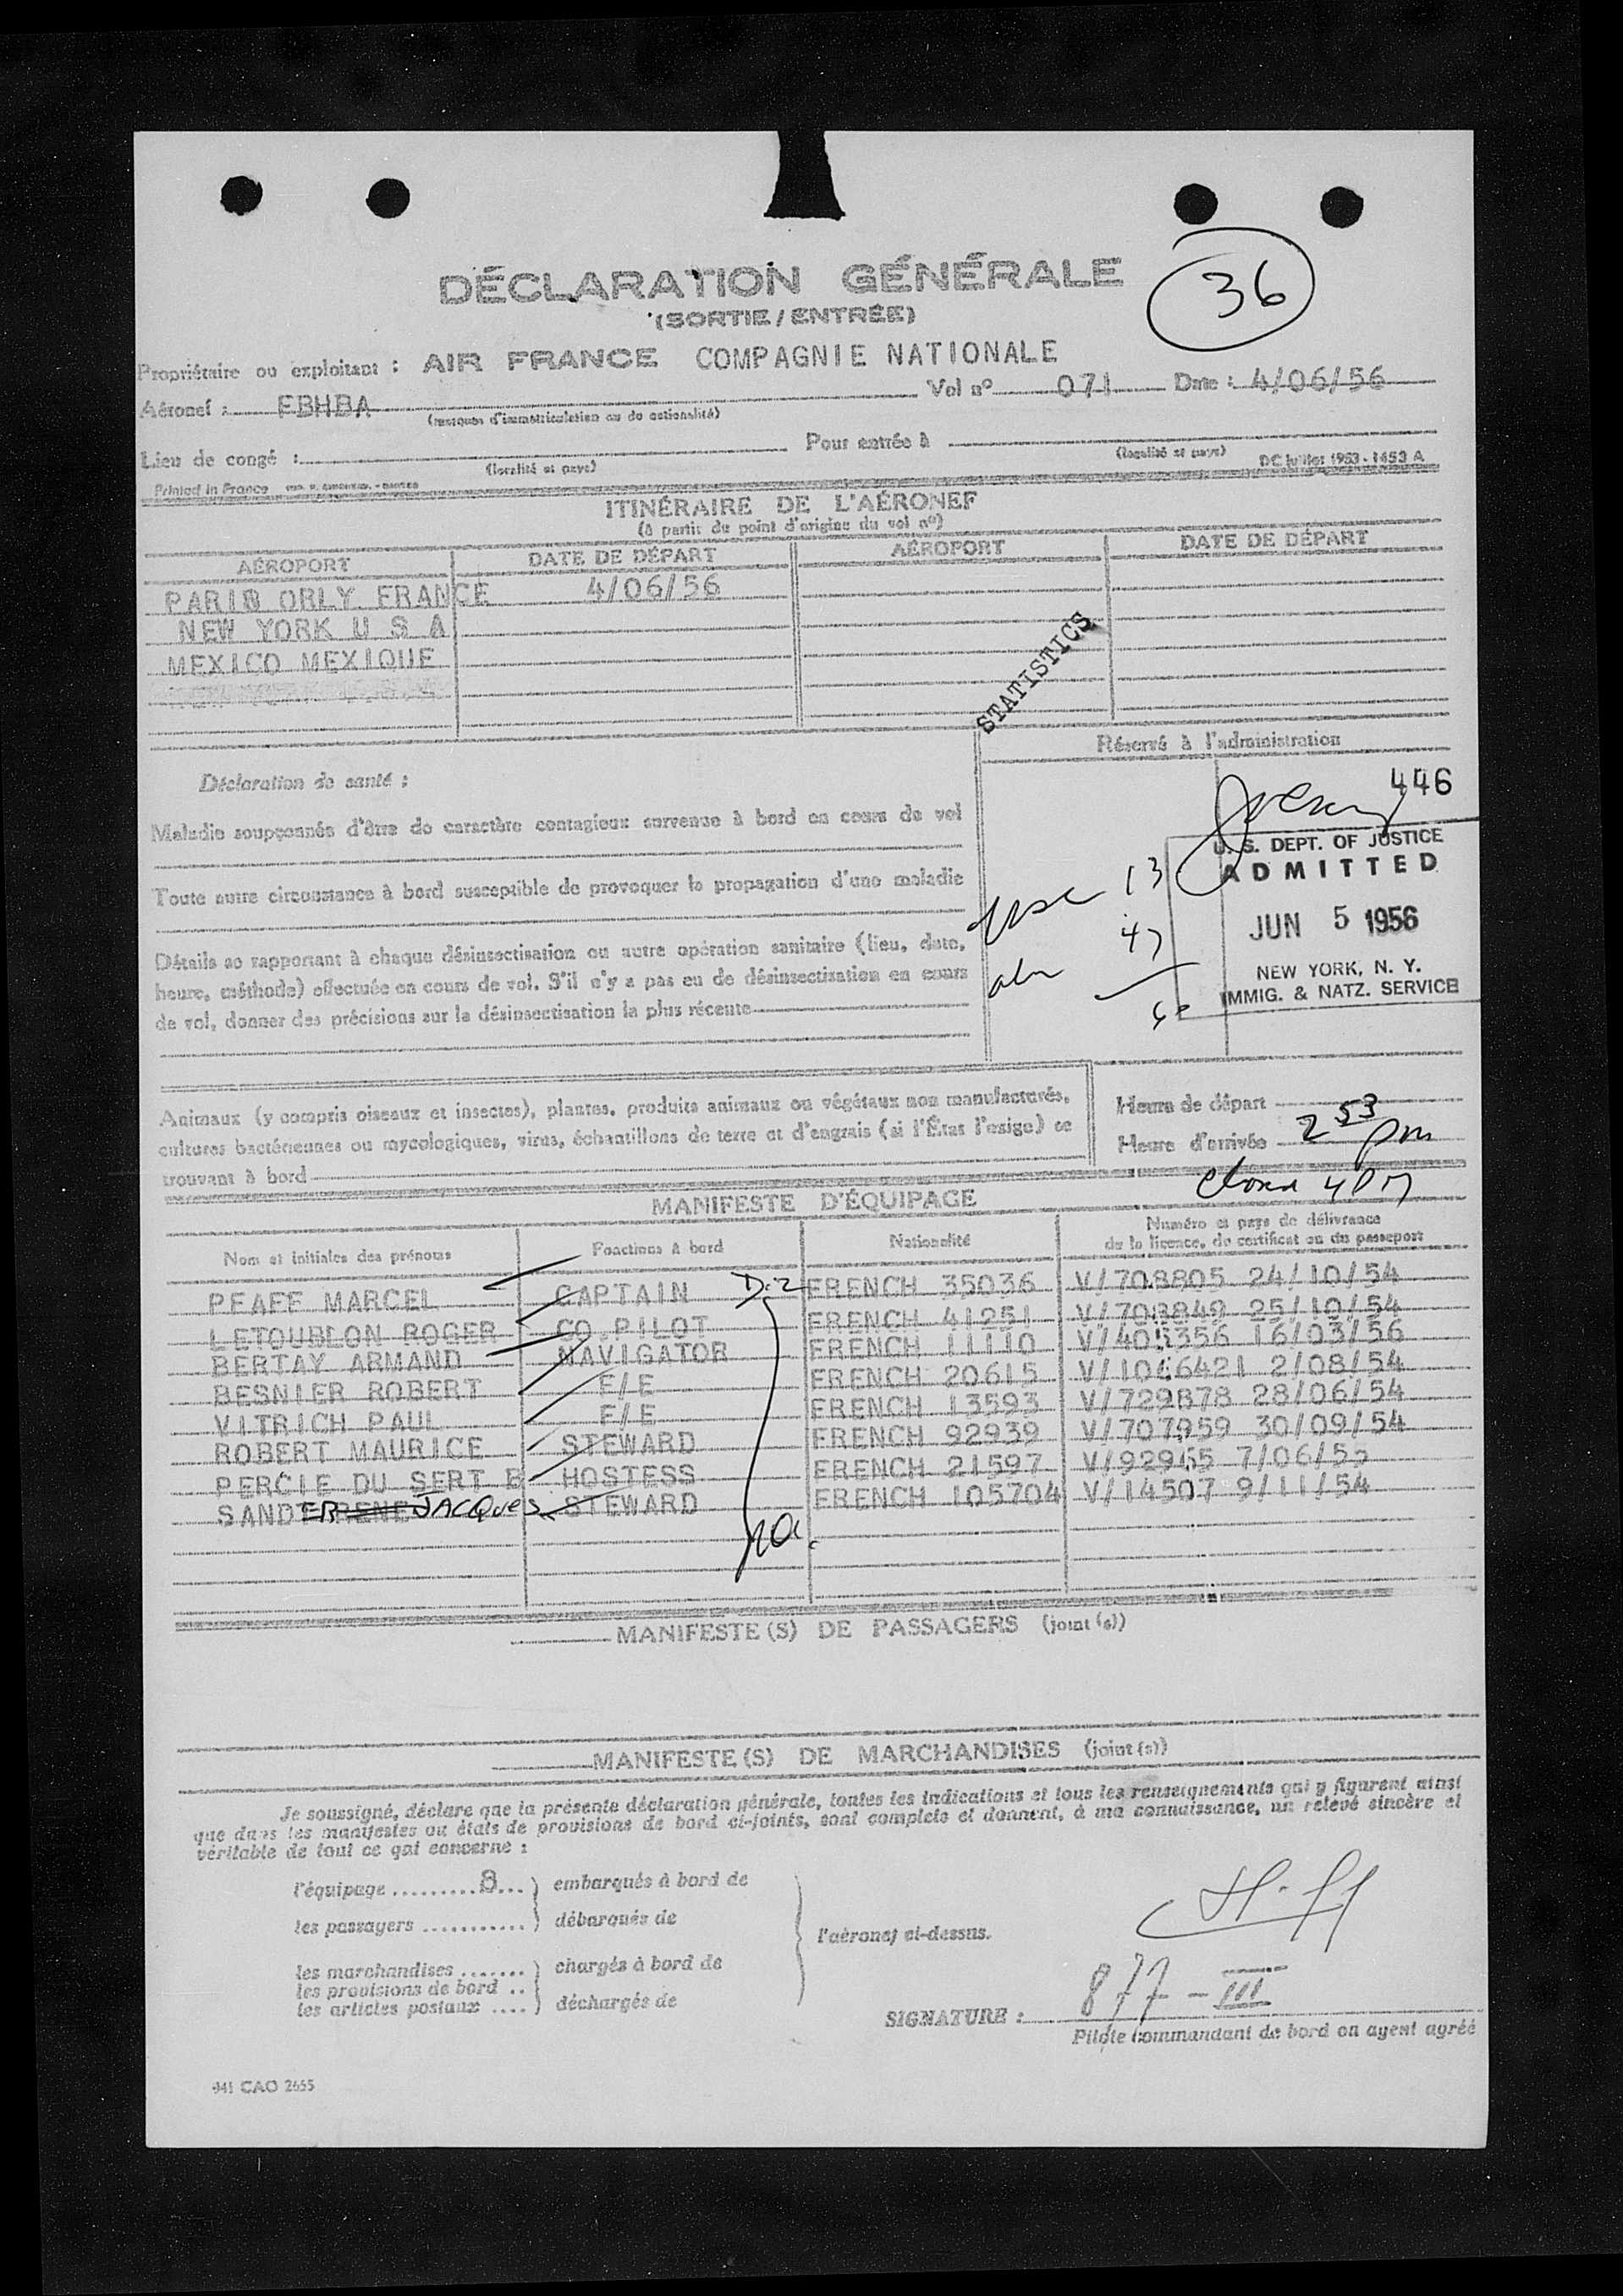 DÉCLARATION GÉNÉRALE
36
(SORTIE / ENTRÉE)
Propriétaire ou exploitant : AIR FRANCE COMPAGNIE NATIONALE
Aéronef : FBHBA Vol nº 071 Date : 4/06/56
(marques d'immatriculation ou de nationalité)
Lieu de congé : Pour entrée à
(localité et pays) (localité et pays) DC Juillet 1953 - 1453 A
Printed in France
ITINÉRAIRE DE L'AÉRONEF
(à partir du point d'origine du vol nº)
AÉROPORT DATE DE DÉPART AÉROPORT DATE DE DÉPART
PARIS ORLY FRANCE 4/06/56
NEW YORK U S A
MEXICO MEXIQUE
STATISTICS
Réservé à l'administration
Déclaration de santé :
446
Maladie soupçonnés d'être de caractère contagieux survenue à bord en cours de vol
U. S. DEPT. OF JUSTICE
ADMITTED
Toute autre circonstance à bord susceptible de provoquer la propagation d'une maladie
13
JUN 5 1956
47
Détails se rapportant à chaque désinsectisation ou autre opération sanitaire (lieu, date,
heure, méthode) effectuée en cours de vol. S'il n'y a pas eu de désinsectisation en cours
de vol, donner des précisions sur la désinsectisation la plus récente
NEW YORK, N. Y.
IMMIG. & NATZ. SERVICE
60
Animaux (y compris oiseaux et insectes), plantes, produits animaux ou végétaux non manufacturés,
cultures bactériennes ou mycologiques, virus, échantillons de terre et d'engrais (si l'État l'exige) se
trouvant à bord
Heure de départ
Heure d'arrivée 2 53 pm
4 PM
MANIFESTE D'ÉQUIPAGE
Nom et initiales des prénoms Fonctions à bord Nationalité Numéro et pays de délivrance
de la licence, du certificat ou du passeport
PFAFF MARCEL CAPTAIN FRENCH 35036 V/708805 24/10/54
LETOUBLON ROGER CO.PILOT FRENCH 41251 V/708849 25/10/54
BERTAY ARMAND NAVIGATOR FRENCH 11110 V/405356 16/03/56
BESNIER ROBERT F/E FRENCH 20615 V/1066421 2/08/54
VITRICH PAUL F/E FRENCH 13593 V/729878 28/06/54
ROBERT MAURICE STEWARD FRENCH 92939 V/707959 30/09/54
PERCIE DU SERT B HOSTESS FRENCH 21597 V/92965 7/06/55
SANDER RENE JACQUES STEWARD FRENCH 105704 V/14507 9/11/54
MANIFESTE (S) DE PASSAGERS (joint (s))
MANIFESTE (S) DE MARCHANDISES (joint (s))
Je soussigné, déclare que la présente déclaration générale, toutes les indications et tous les renseignements qui y figurent ainsi
que dans les manifestes ou états de provisions de bord ci-joints, sont complets et donnent, à ma connaissance, un relevé sincère et
véritable de tout ce qui concerne :
l'équipage .........8... ) embarqués à bord de
les passagers ........... ) débarqués de
l'aéronef ci-dessus.
les marchandises ....... ) chargés à bord de
les provisions de bord ..
les articles postaux .... ) déchargés de
877 - III
SIGNATURE :
Pilote commandant de bord ou agent agréé
941 CAO 2655